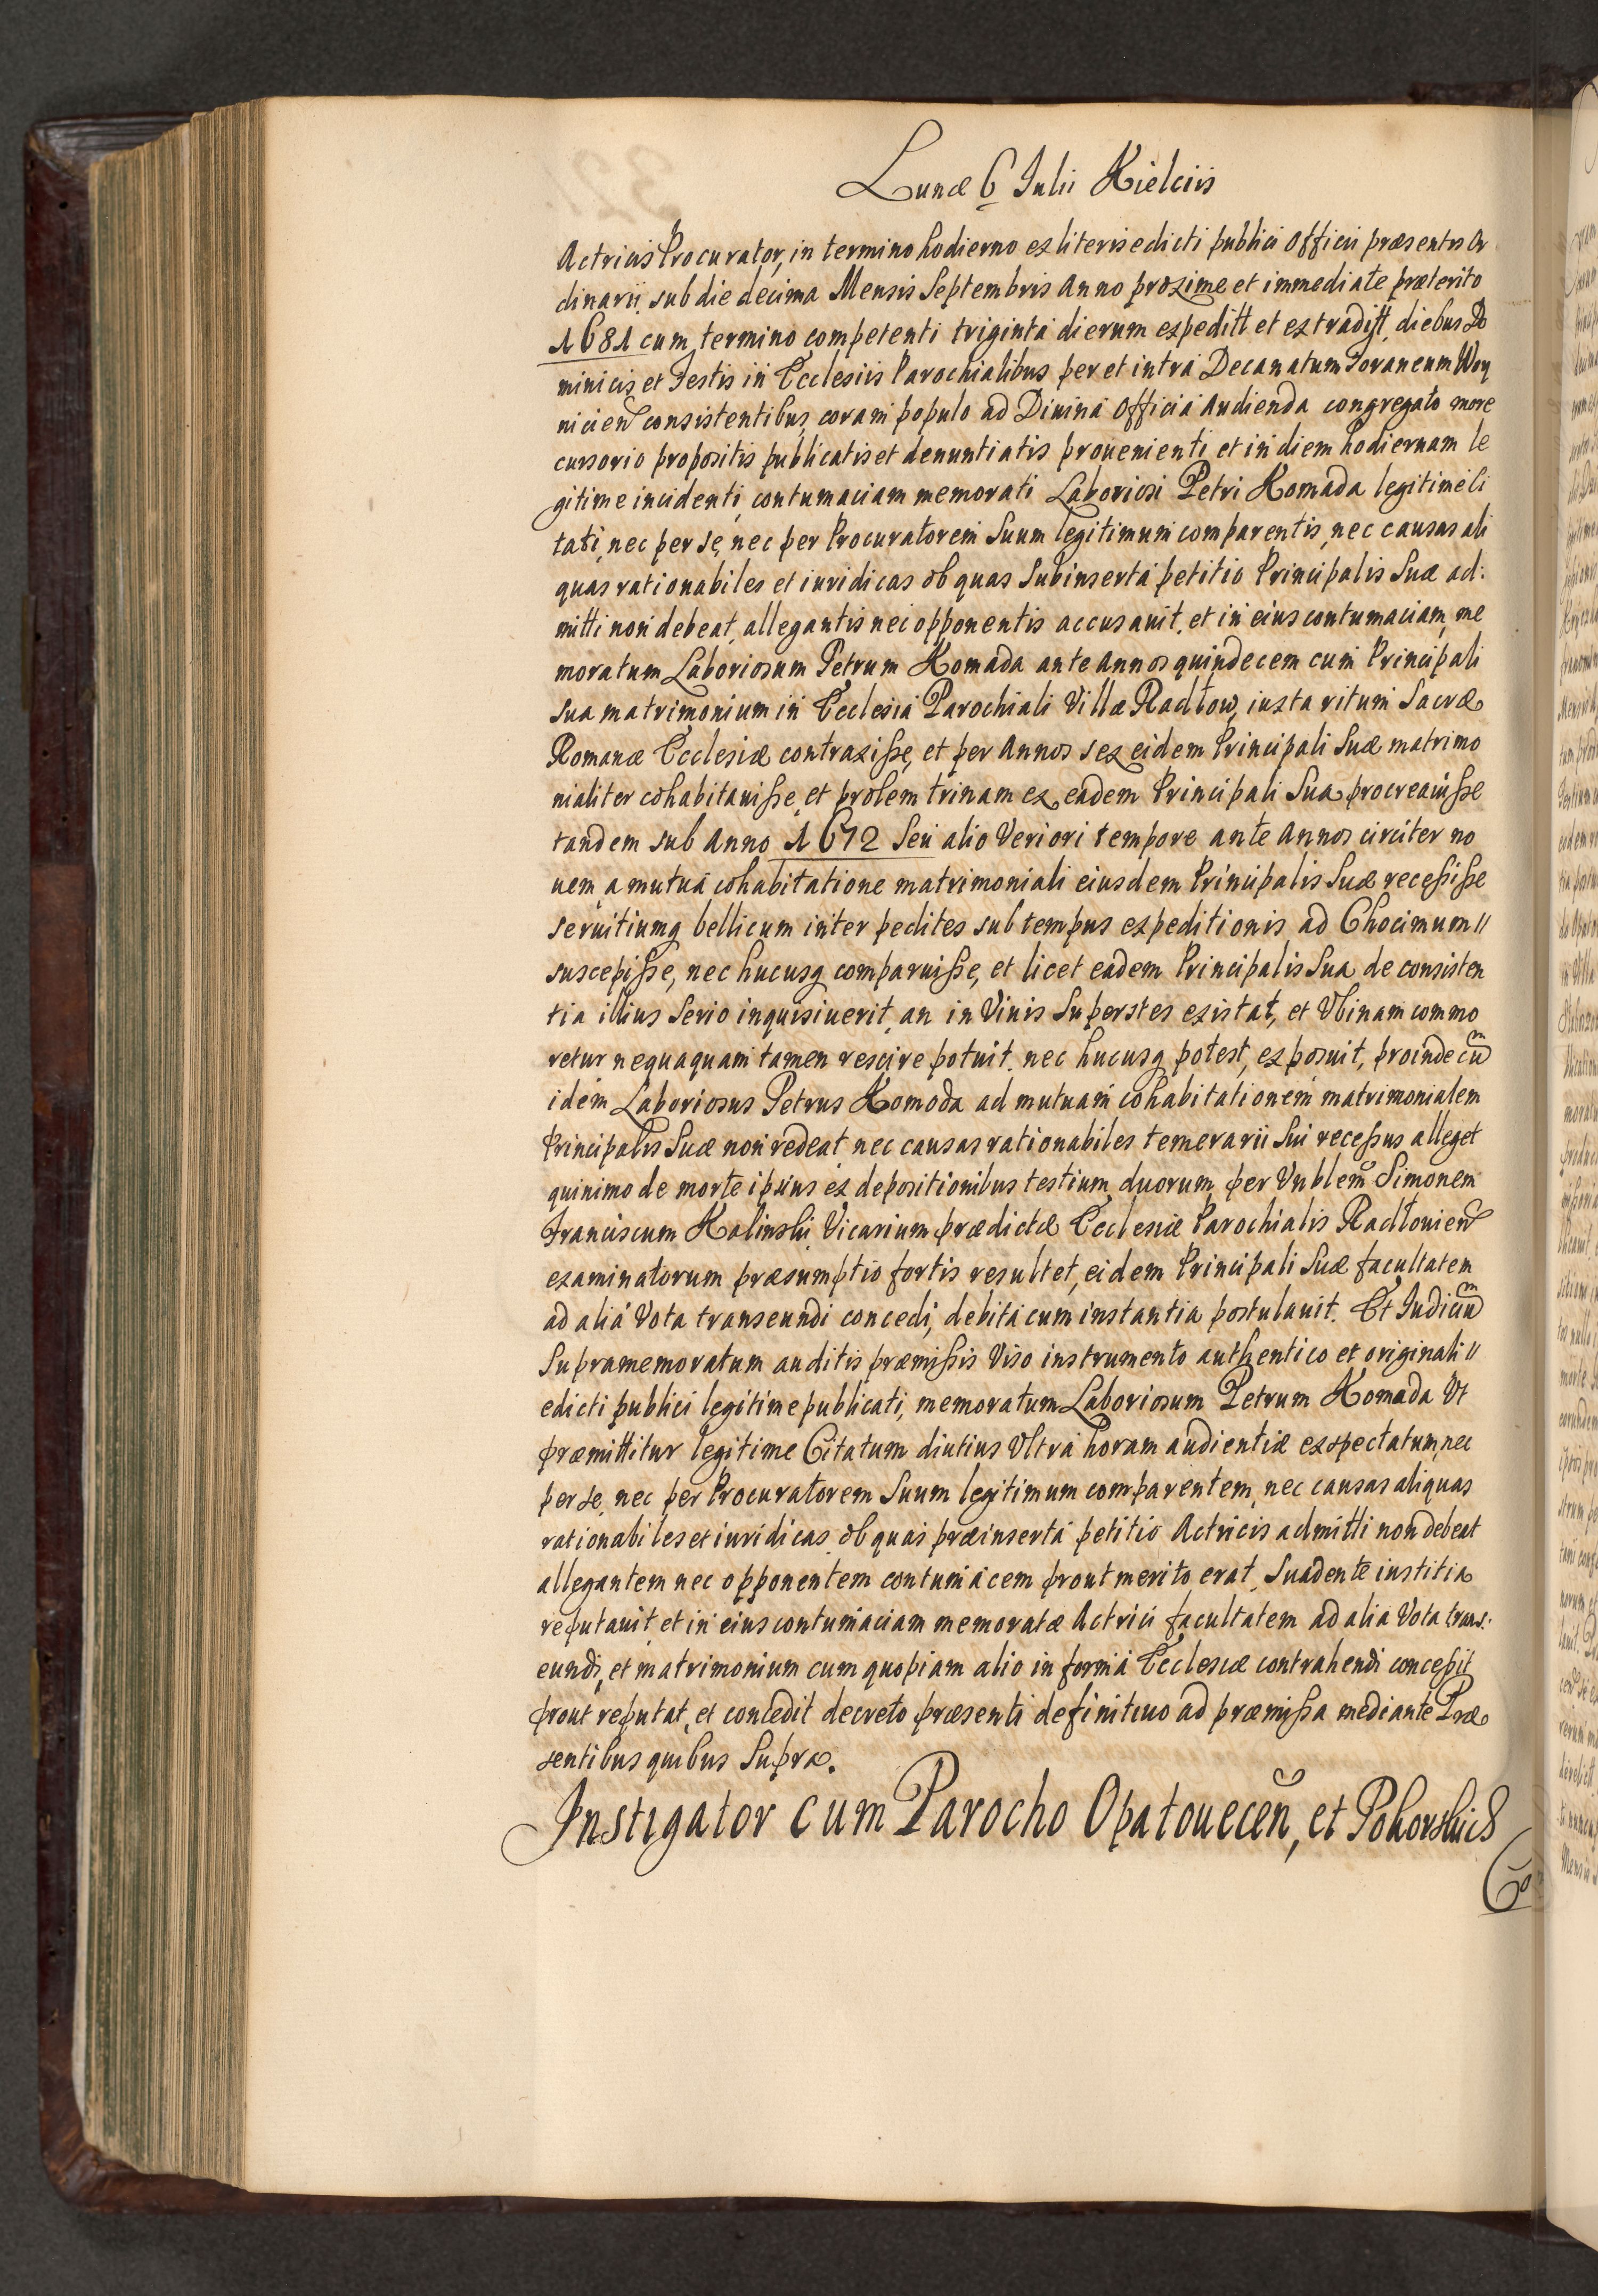 Lunæ 6 Iulii Kielciis
Actricis Procurator, in termino hodierno ex literis edicti publici Officii præsentis Or
dinarii sub die decima Mensis Septembris Anno proxime et immediate præterito
1681 cum termino competenti triginta dierum expeditt et extraditt, diebus Do
minicis et Festis in Ecclesiis Parochialibus per et intra Decanatum Foraneum Woy
nicien̄ consistentibus, coram populo ad Diuina Officia Audienda congregato more
cursorio propositis publicatis et denuntiatis prouenienti et in diem hodiernam le
gitime incidenti, contumaciam memorati Laboriosi Petri Komada legitime Ci
tati, nec per se, nec per Procuratorem Suum legitimum comparentis, nec causas ali
quas rationabiles et iuridicas ob quas Subinserta petitio Principalis Suæ ad:
mitti non debeat, allegantis nec opponentis accusauit. et in eius contumaciam, me
moratum Laboriosum Petrum Komada ante Annos quindecem cum Principali
sua matrimonium in Ecclesia Parochiali Villæ Radłow, iuxta ritum Sacræ
Romanæ Ecclesiæ contraxisse, et per Annos sex eidem Principali Suæ matrimo
nialiter cohabitauisse, et prolem trinam ex eadem Principali Sua procreauisse
tandem sub Anno 1672 Seu alio Veriori tempore ante Annos circiter no
uem, a mutua cohabitatione matrimoniali eiusdem Principalis Suæ recessisse
seruitiumq bellicum inter pedites sub tempus expeditionis ad Chocimum //
suscepisse, nec hucusq comparuisse, et licet eadem Principalis Sua de consisten
tia illius Serio inquisiuerit, an in Viuis Superstes existat, et Vbinam commo
retur nequaquam tamen rescire potuit. nec hucusq potest, exposuit, proinde cum
idem Laboriosus Petrus Komoda ad mutuam cohabitationem matrimonialem
Principalis Suæ non redeat nec causas rationabiles temerarii Sui recessus alleget
quinimo de morte ipsius ex depositionibus testium, duorum, per Vnblem Simonem
Franciscum Kalinski Vicarium prædictæ Ecclesiæ Parochialis Radłouien̄
examinatorum præsumptio fortis resultet, eidem Principali Suæ facultatem
ad alia Vota transeundi concedi, debita cum instantia postulauit. Et Iudicium
Supramemoratum auditis præmissis Viso instrumento authentico et originali //
edicti publici legitime publicati, memoratum Laboriosum Petrum Komada Vt
præmittitur legitime Citatum diutius Vltra horam audientiæ exspectatum, nec
per se, nec per Procuratorem Suum legitimum comparentem, nec causas aliquas
rationabiles et iuridicas ob quas præinserta petitio Actricis admitti non debeat
allegantem nec opponentem contumacem prout merito erat, Suadente iustitia
reputauit, et in eius contumaciam memoratæ Actrici facultatem ad alia Vota trans:
eundi, et matrimonium cum quopiam alio in forma Ecclesiæ contrahendi concessit
prout reputat, et concedit decreto præsenti definitiuo ad præmissa mediante Præ
sentibus quibus Supra.
Instigator cum Parocho Opatouecen̄, et Pokorskich